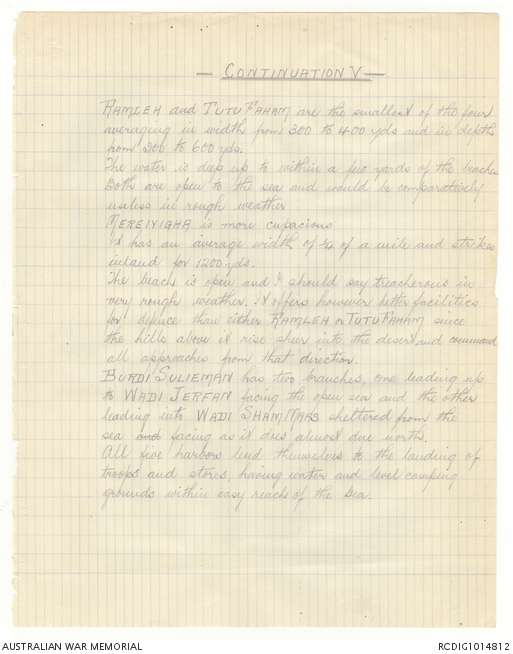 — CONTINUATION V —
RAMLEH and TUTU FAHAM are the smallest of the four
averaging in width from 300 to 400 yds and in depth
from 200 to 600 yds.
The water is deep up to within a few yards of the beaches
Both are open to the sea and would be comparatively
useless in rough weather
MEREIYIGHA is more capacious
It has an average width of ¾ of a mile and strikes
inland for 1200 yds.
The beach is open and I should say treacherous in
very rough weather. It offers however better facilities
for defence than either RAMLEH or TUTU FAHAM since
the hills above it rise sheer into the desert and command
all approaches from that direction.
BURDI SULIEMAN has two branches, one leading up
to WADI JERFAN facing the open sea and the other
leading into WADI SHAMMARS sheltered from the
sea and facing as it does almost due north.
All five harbors lend themselves to the landing of
troops and stores, having water and level camping
grounds within easy reach of the sea.
AUSTRALIAN WAR MEMORIAL
RCDIG1014812